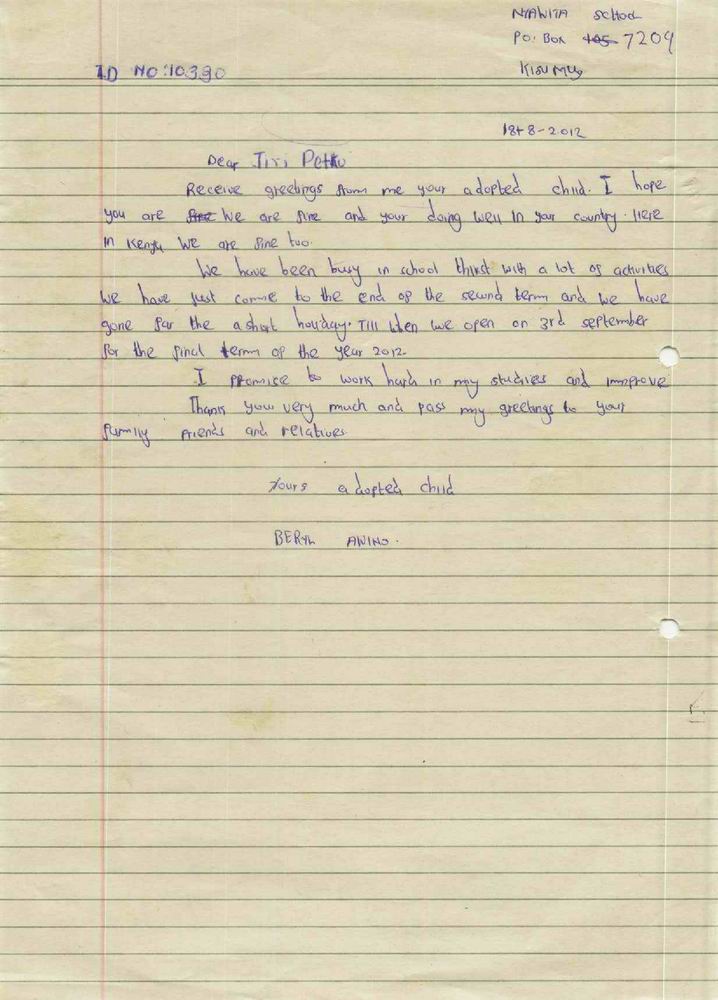 NYAWITA School
P.O. BOX 105 7209
ID NO:10390
KISUMU
18+8-2012
Dear Jiri Petru
Receive greetings from me your adopted child. I hope
you are fine We are fine and your doing well in your country. Here
in Kenya we are fine too.
We have been busy in school thirst with a lot of activities
We have just come to the end of the second term and we have
gone for the a short holiday. Till when we open on 3rd september
for the final term of the year 2012.
I promise to work hard in my studies and improve
Thank you very much and pass my greetings to your
family friends and relatives
Yours adopted child
BERYL AWINO.